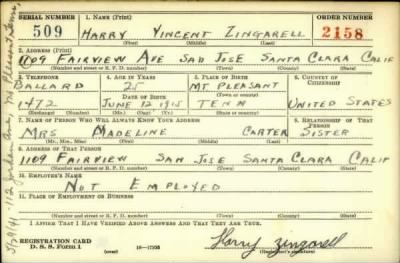 SERIAL NUMBER 1. NAME (Print) ORDER NUMBER
509 HARRY VINCENT ZINGARELL 2158
(First) (Middle) (Last)
2. ADDRESS (Print)
1109 FAIRVIEW AVE SAN JOSE SANTA CLARA CALIF
(Number and street or R. F. D. number) (Town) (County) (State)
3. TELEPHONE 4. AGE IN YEARS 5. PLACE OF BIRTH 6. COUNTRY OF CITIZENSHIP
BALLARD 25 MT. PLEASANT
DATE OF BIRTH (Town or county)
1472 JUNE 12 1915 TENN UNITED STATES
(Exchange) (Number) (Mo.) (Day) (Yr.) (State or country)
7. NAME OF PERSON WHO WILL ALWAYS KNOW YOUR ADDRESS 8. RELATIONSHIP OF THAT PERSON
MRS MADELINE CARTER SISTER
(Mr., Mrs., Miss) (First) (Middle) (Last)
9. ADDRESS OF THAT PERSON
1109 FAIRVIEW SAN JOSE SANTA CLARA CALIF
(Number and street or R. F. D. number) (Town) (County) (State)
10. EMPLOYER'S NAME
NOT EMPLOYED
11. PLACE OF EMPLOYMENT OR BUSINESS
(Number and street or R. F. D. number) (Town) (County) (State)
I AFFIRM THAT I HAVE VERIFIED ABOVE ANSWERS AND THAT THEY ARE TRUE.
REGISTRATION CARD
D. S. S. Form 1 (over) Harry Zingarell
(Registrant's signature)
Mt. Pleasant, Tenn.